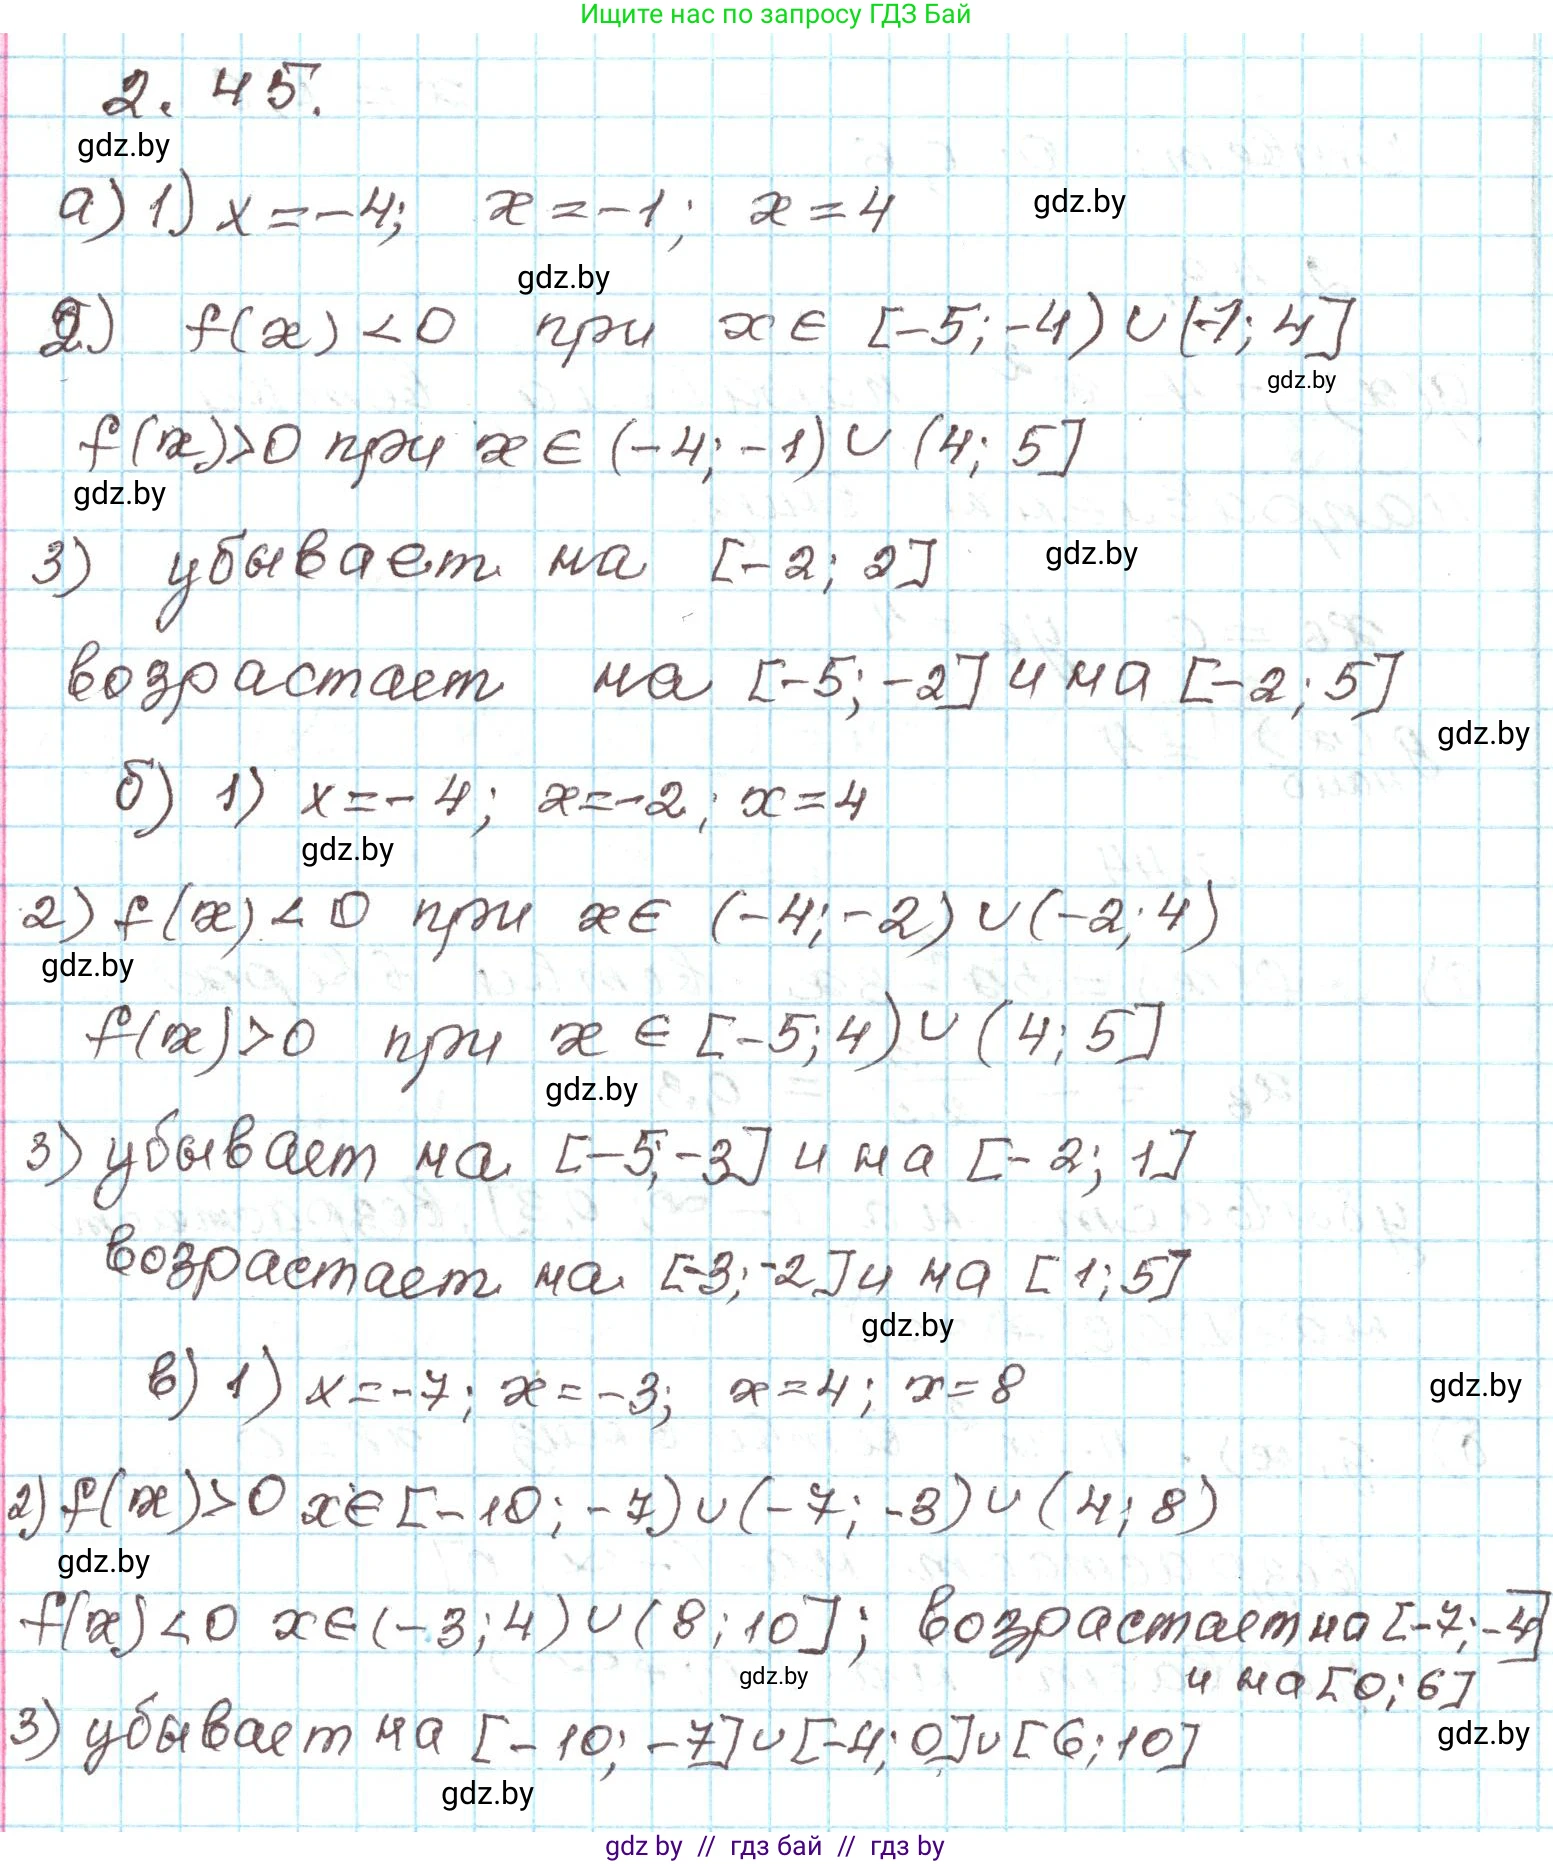 Ищите нас по запросу ГДЗ Бай
2. 45.
gdz.by
а) 1) x = -4; x = -1; x = 4
gdz.by
gdz.by
2) f(x) < 0 при x ∈ [-5; -4) ∪ (-1; 4]
gdz.by
f(x) > 0 при x ∈ (-4; -1) ∪ (4; 5]
gdz.by
3) убывает на [-2; 2]
gdz.by
возрастает на [-5; -2] и на [-2; 5]
gdz.by
б) 1) x = -4; x = -2; x = 4
gdz.by
2) f(x) < 0 при x ∈ (-4; -2) ∪ (-2; 4)
gdz.by
f(x) > 0 при x ∈ [-5; 4) ∪ (4; 5]
gdz.by
3) убывает на [-5; -3] и на [-2; 1]
возрастает на [-3; -2] и на [1; 5]
gdz.by
в) 1) x = -7; x = -3; x = 4; x = 8
gdz.by
2) f(x) > 0 x ∈ [-10; -7) ∪ (-7; -3) ∪ (4; 8)
gdz.by
f(x) < 0 x ∈ (-3; 4) ∪ (8; 10]; возрастает на [-7; -4]
и на [0; 6]
gdz.by
3) убывает на [-10; -7] ∪ [-4; 0] ∪ [6; 10]
gdz.by
gdz.by
gdz by // гдз бай // гдз by